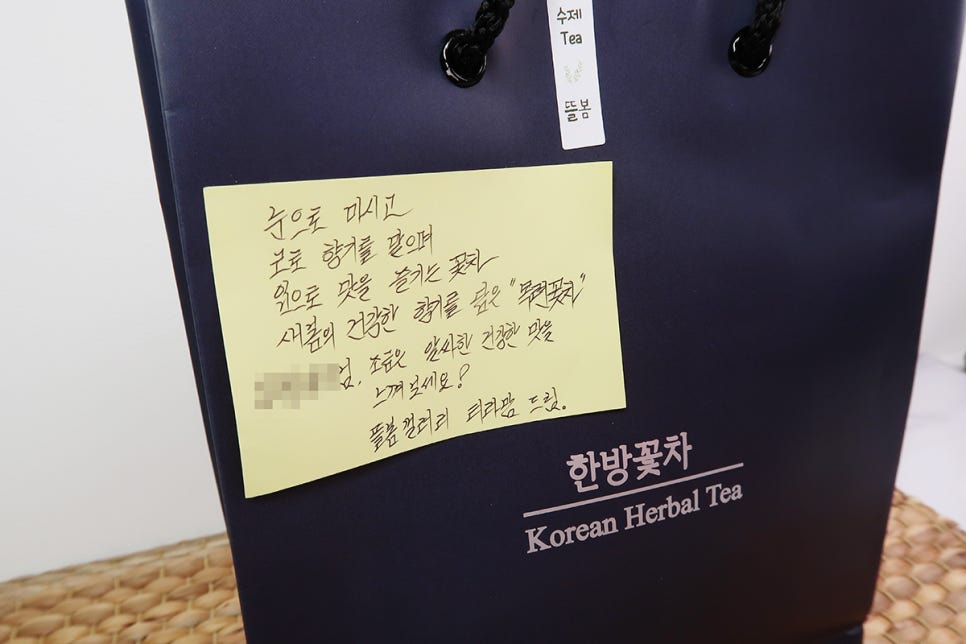 수제
Tea
뜰봄
눈으로 마시고
코로 향기를 맡으며
입으로 맛을 즐기는 꽃차
새봄의 건강한 향기를 품은 "목련꽃차"
님. 조금은 알싸한 건강한 맛을
느껴보세요?
뜰봄갤러리 티라팜 드림.
한방꽃차
Korean Herbal Tea